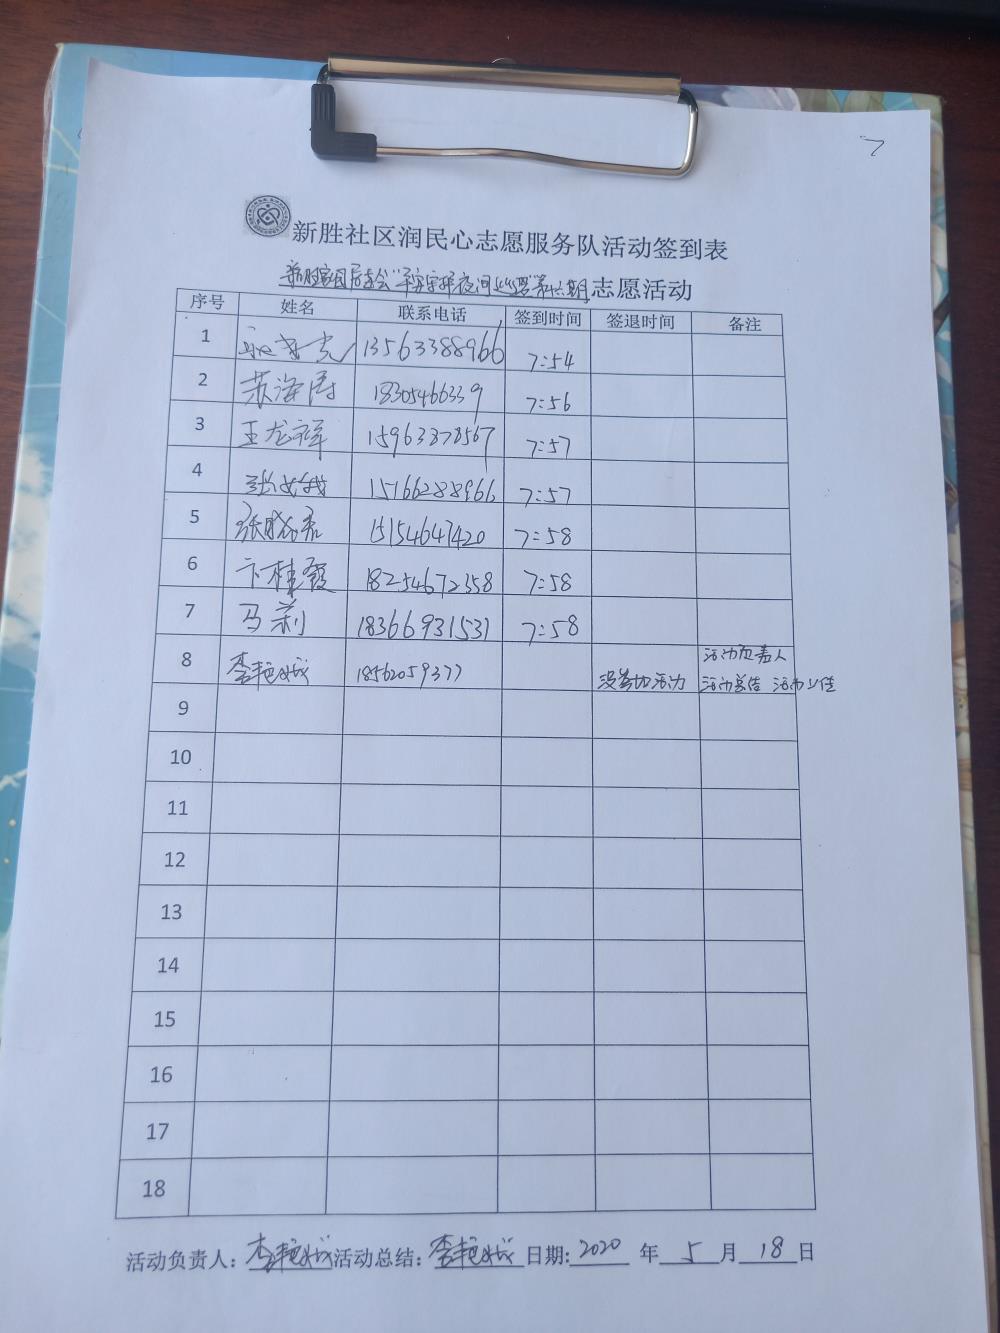 7
新胜社区润民心志愿服务队活动签到表
新胜家园居委会"平安守护夜间巡逻"第六期志愿活动
序号 姓名 联系电话 签到时间 签退时间 备注
1 13563388966 7:54
2 苏海涛 18305466339 7:56
3 王龙祥 15963378567 7:57
4 15166288966 7:57
5 15154647420 7:58
6 卞桂霞 18254672358 7:58
7 马莉 18366931531 7:58
8 李艳 18562059377 没参加活动 活动负责人
活动总结 活动上传
9
10
11
12
13
14
15
16
17
18
活动负责人: 李艳 活动总结: 李艳 日期: 2020 年 5 月 18 日